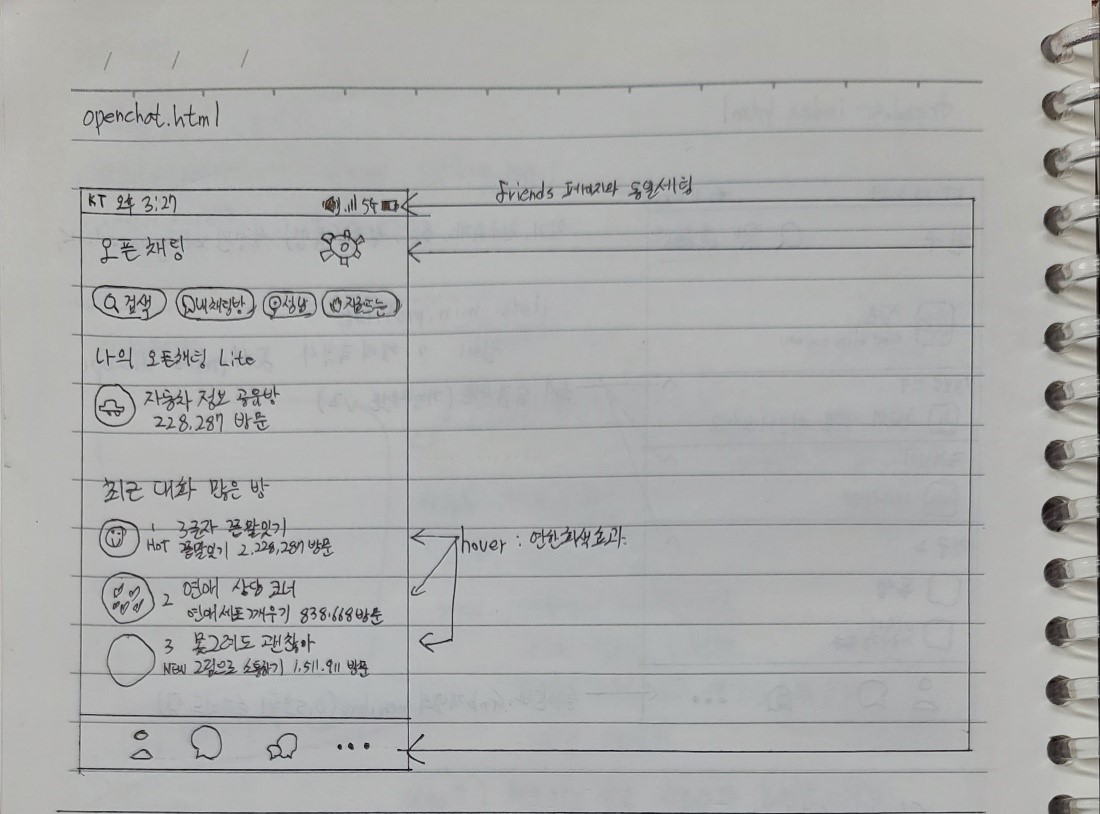 openchat.html
friends 페이지와 동일세팅
KT 오후 3:27 54
오픈 채팅
검색 내채팅방 지금뜨는
나의 오픈채팅 Lite
자동차 정보 공유방
228.287 방문
최근 대화 많은 방
1 3글자 끝말잇기
HOT 끝말잇기 2.228.287 방문
hover : 연한회색효과
2 연애 상담 코너
연애세포깨우기 838.668방문
3 못그려도 괜찮아
NEW 그림으로 소통하기 1.511.911 방문